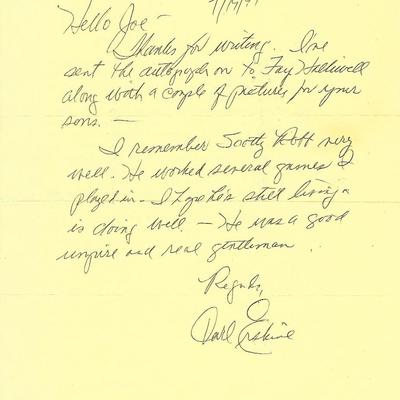 Hello Joe —
Thanks for writing. I've
sent the autograph on to Fay Halliwell
along with a couple of pictures for your
sons. —
I remember Scotty Robb very
well. He worked several games I
played in — I hope he's still living &
is doing well — He was a good
umpire and real gentleman.
Regards,
Carl Erskine